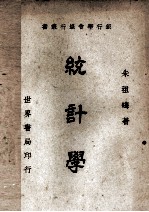 銀行學會銀行叢書
朱祖晦著
統計學
世界書局印行